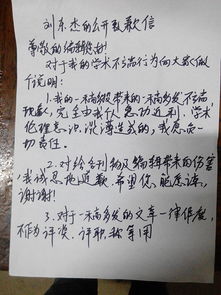 刘东杰的公开致歉信
尊敬的编辑部：
对于我的学术不端行为向大家做
个说明：
1.我的一稿多投带来的一稿多发不端
现象，完全由我个人急功近利，学术
伦理意识淡薄造成的，我愿负一
切责任。
2.对给贵刊物及编辑带来的伤害
我诚恳地道歉，希望您能原谅，
谢谢！
3.对于一稿多发的文章一律作废，
不作为评奖、评职称等用